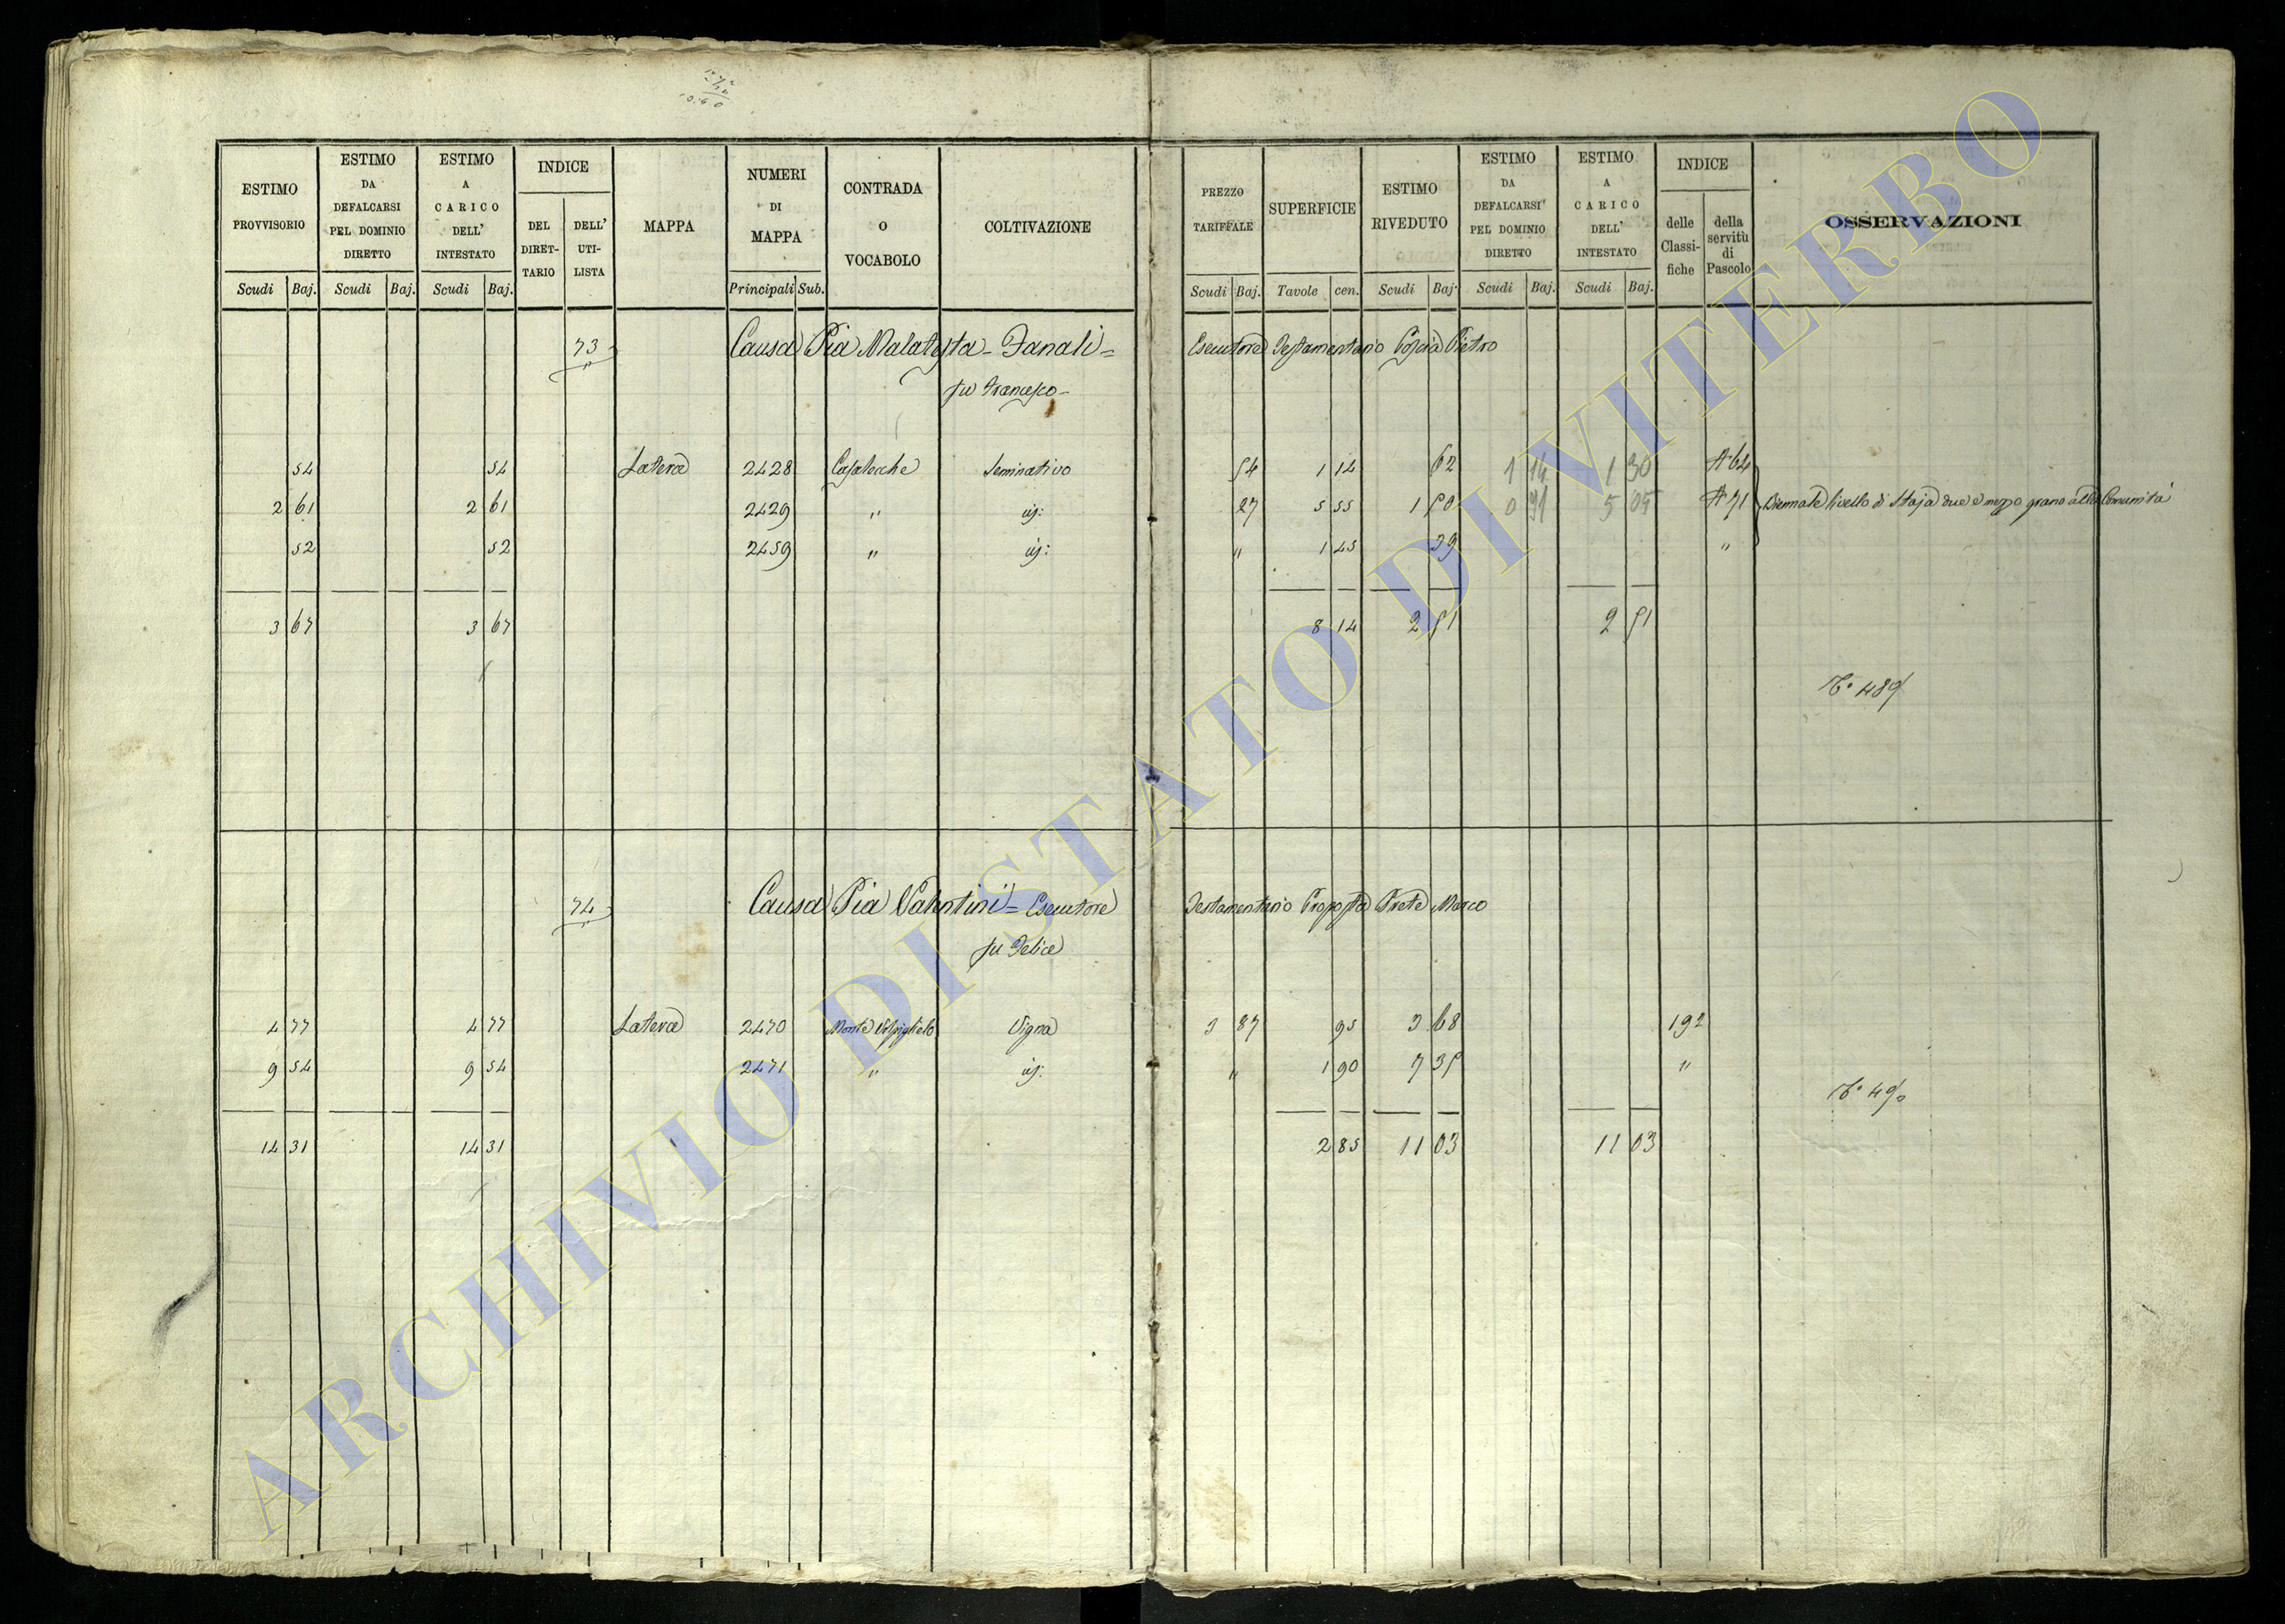 ESTIMO PROVVISORIO
ESTIMO DA DEFALCARSI PEL DOMINIO DIRETTO
ESTIMO A CARICO DELL' INTESTATO
INDICE
DEL DIRETTARIO
DELL' UTILISTA
MAPPA
NUMERI DI MAPPA
CONTRADA O VOCABOLO
COLTIVAZIONE
PREZZO TARIFFALE
SUPERFICIE
ESTIMO RIVEDUTO
ESTIMO DA DEFALCARSI PEL DOMINIO DIRETTO
ESTIMO A CARICO DELL' INTESTATO
INDICE
delle Classifiche
della servitù di Pascolo
OSSERVAZIONI
Scudi Baj. Scudi Baj. Scudi Baj. Principali Sub. Scudi Baj. Tavole cen. Scudi Baj. Scudi Baj. Scudi Baj.
73 Causa Pia Malatesta - Fanali = Esecutore Testamentario Pietro
fu Francesco
54 54 Latera 2428 Casalecche Seminativo 54 1 14 62 1 14 1 30 A 64
2 61 2 61 2429 " id: 27 5 55 1 50 0 91 5 05 A 71 Biennale livello di Staja due e mezzo grano alla Comunità
52 52 2459 " id: " 1 45 39 "
3 67 3 67 8 14 2 51 2 51
N° 489
74 Causa Pia Valentini = Esecutore Testamentario Proposta Prete Marco
fu Felice
4 77 4 77 Latera 2470 Monte Vigna 3 87 95 3 68 192
9 54 9 54 2471 " id: " 1 90 7 35 "
N° 490
14 31 14 31 2 85 11 03 11 03
ARCHIVIO DI STATO DI VITERBO